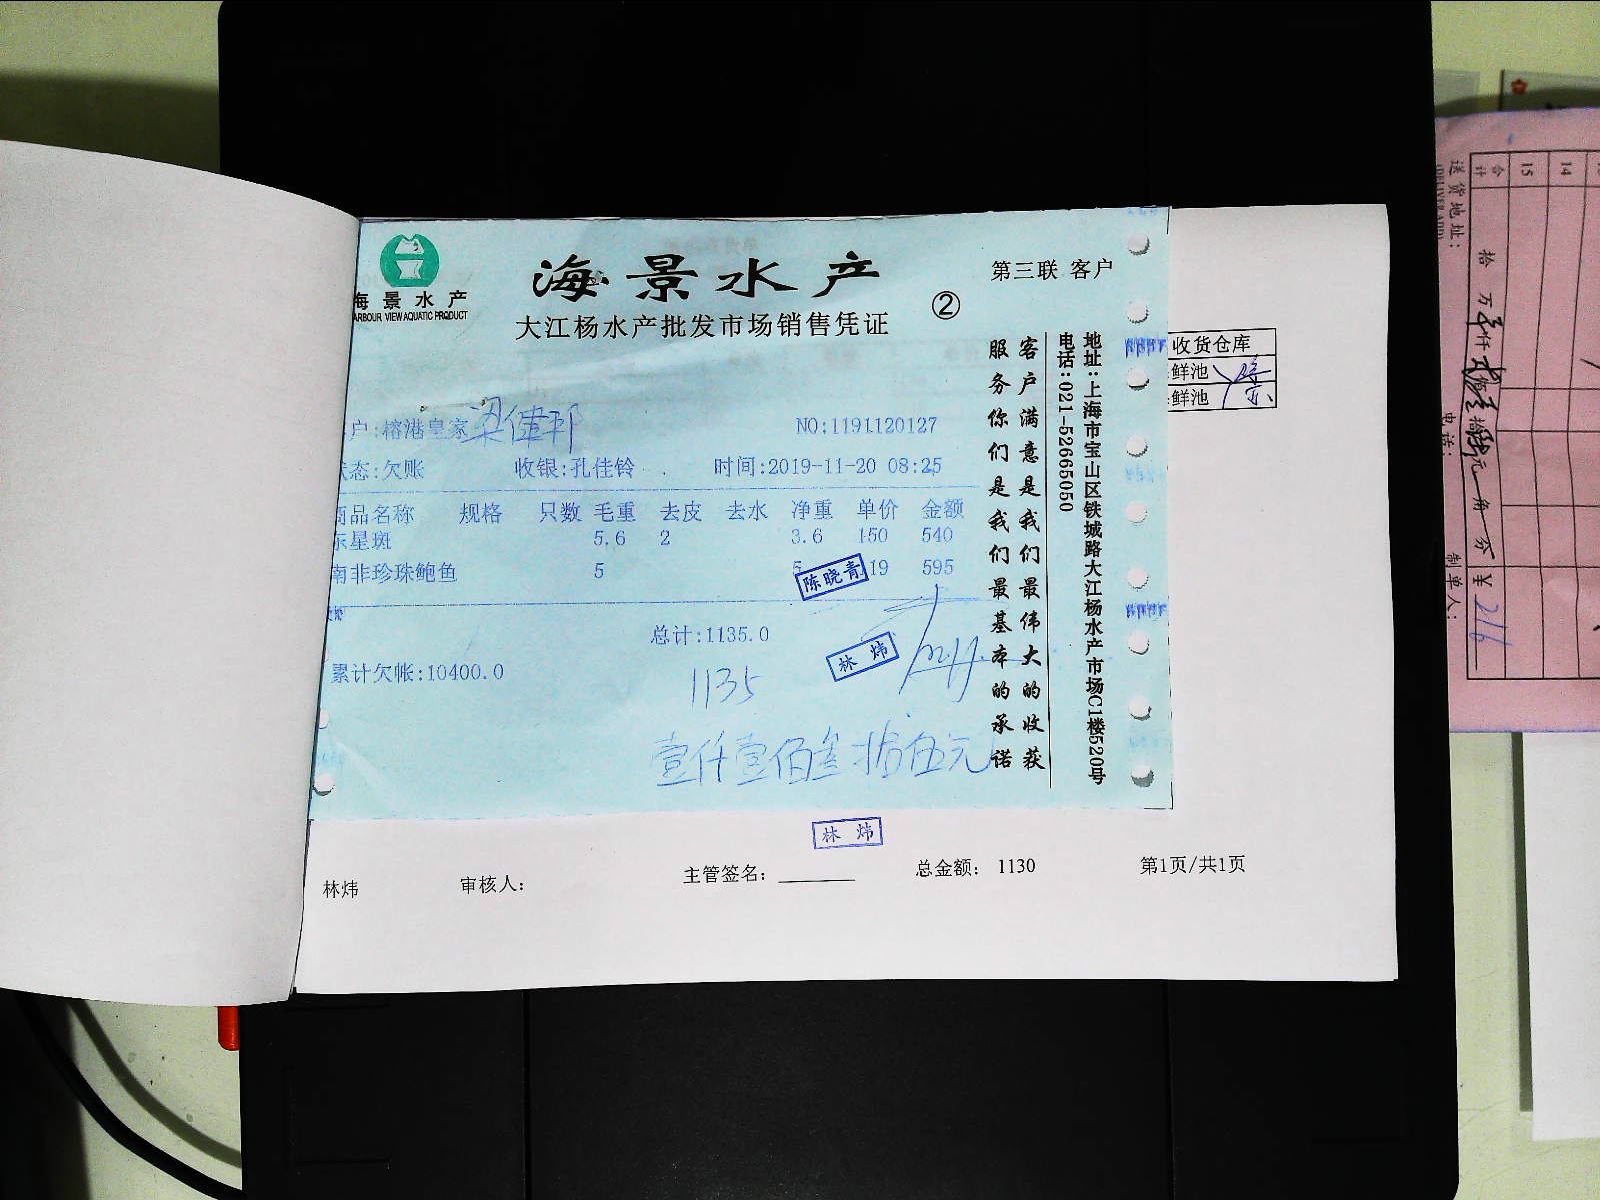 海景水产
ARBOUR VIEW AQUATIC PRODUCT
海景水产
大江杨水产批发市场销售凭证
②
第三联 客户
户:榕港皇家 梁健邦
NO:1191120127
状态:欠账 收银:孔佳铃 时间:2019-11-20 08:25
商品名称 规格 只数 毛重 去皮 去水 净重 单价 金额
东星斑 5.6 2 3.6 150 540
南非珍珠鲍鱼 5 5 119 595
陈晓青
总计:1135.0
林炜
累计欠帐:10400.0
1135
壹仟壹佰叁拾伍元
客户满意是我们最伟大的收获
服务你们是我们最基本的承诺
地址:上海市宝山区铁城路大江杨水产市场C1楼520号
电话:021-52665050
收货仓库
鲜池
鲜池
林炜
林炜 审核人: 主管签名: 总金额: 1130 第1页/共1页
14
15
合计
拾 万 仟 佰 拾 元 角 分 ¥ 216
送货地址:
电话:
制单人: